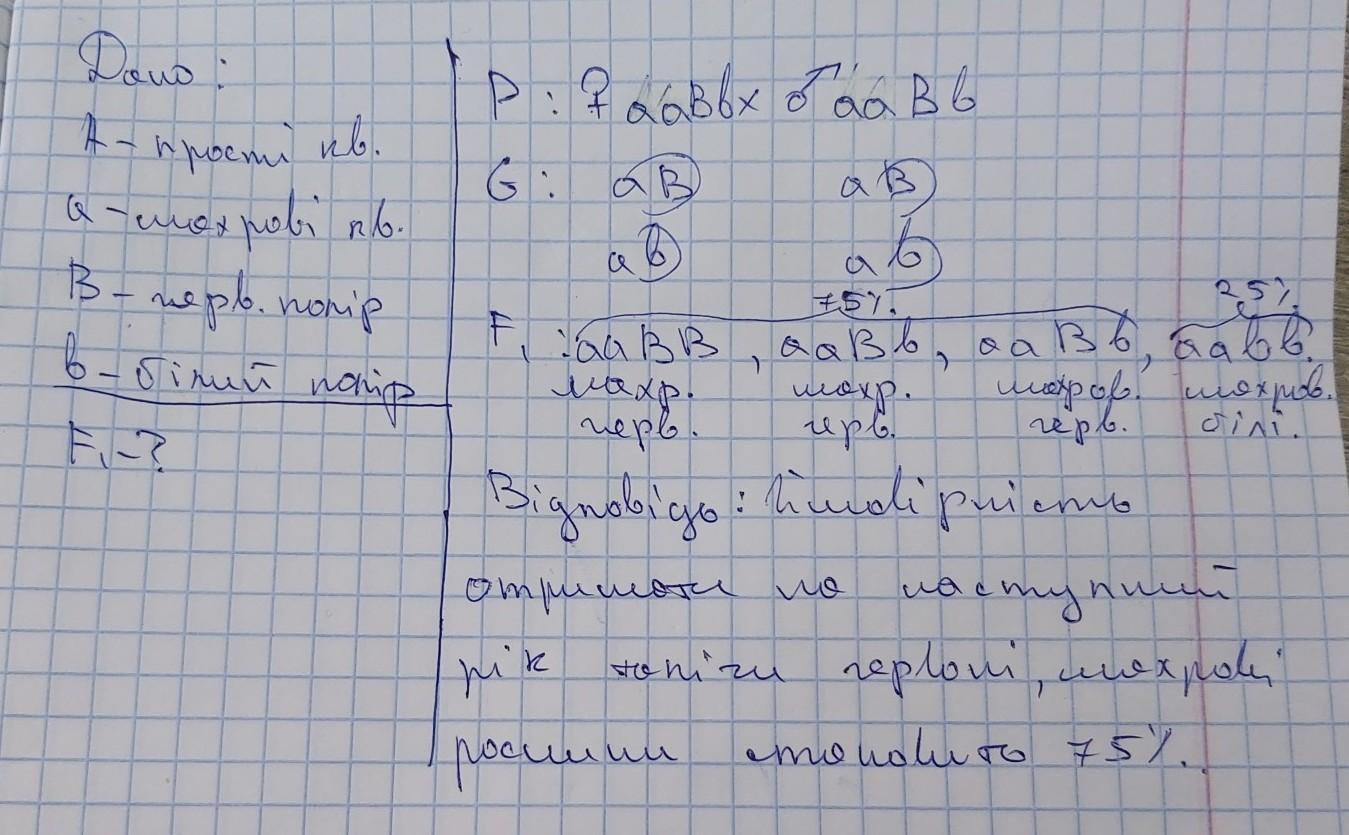 Дано:
A – прості кв.
a – махрові кв.
B – черв. колір
b – білий колір
F₁ – ?
P: ♀ aaBb x ♂ aaBb
G: aB aB
ab ab
75% 25%
F₁: aaBB, aaBb, aaBb, aabb.
махр. махр. махров. махров.
черв. черв. черв. білі.
Відповідь: Ймовірність
отримати на наступний
рік червоні, махрові
рослини становить 75%.